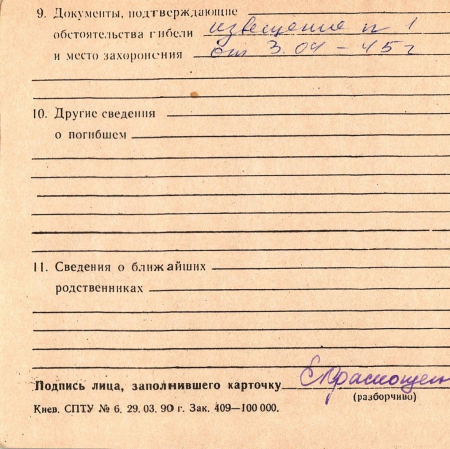 9. Документы, подтверждающие
обстоятельства гибели извещение п 1
и место захоронения от 3.04-45г
10. Другие сведения
о погибшем
11. Сведения о ближайших
родственниках
Подпись лица, заполнившего карточку
(разборчиво)
Киев. СПТУ № 6. 29. 03. 90 г. Зак. 409—100 000.